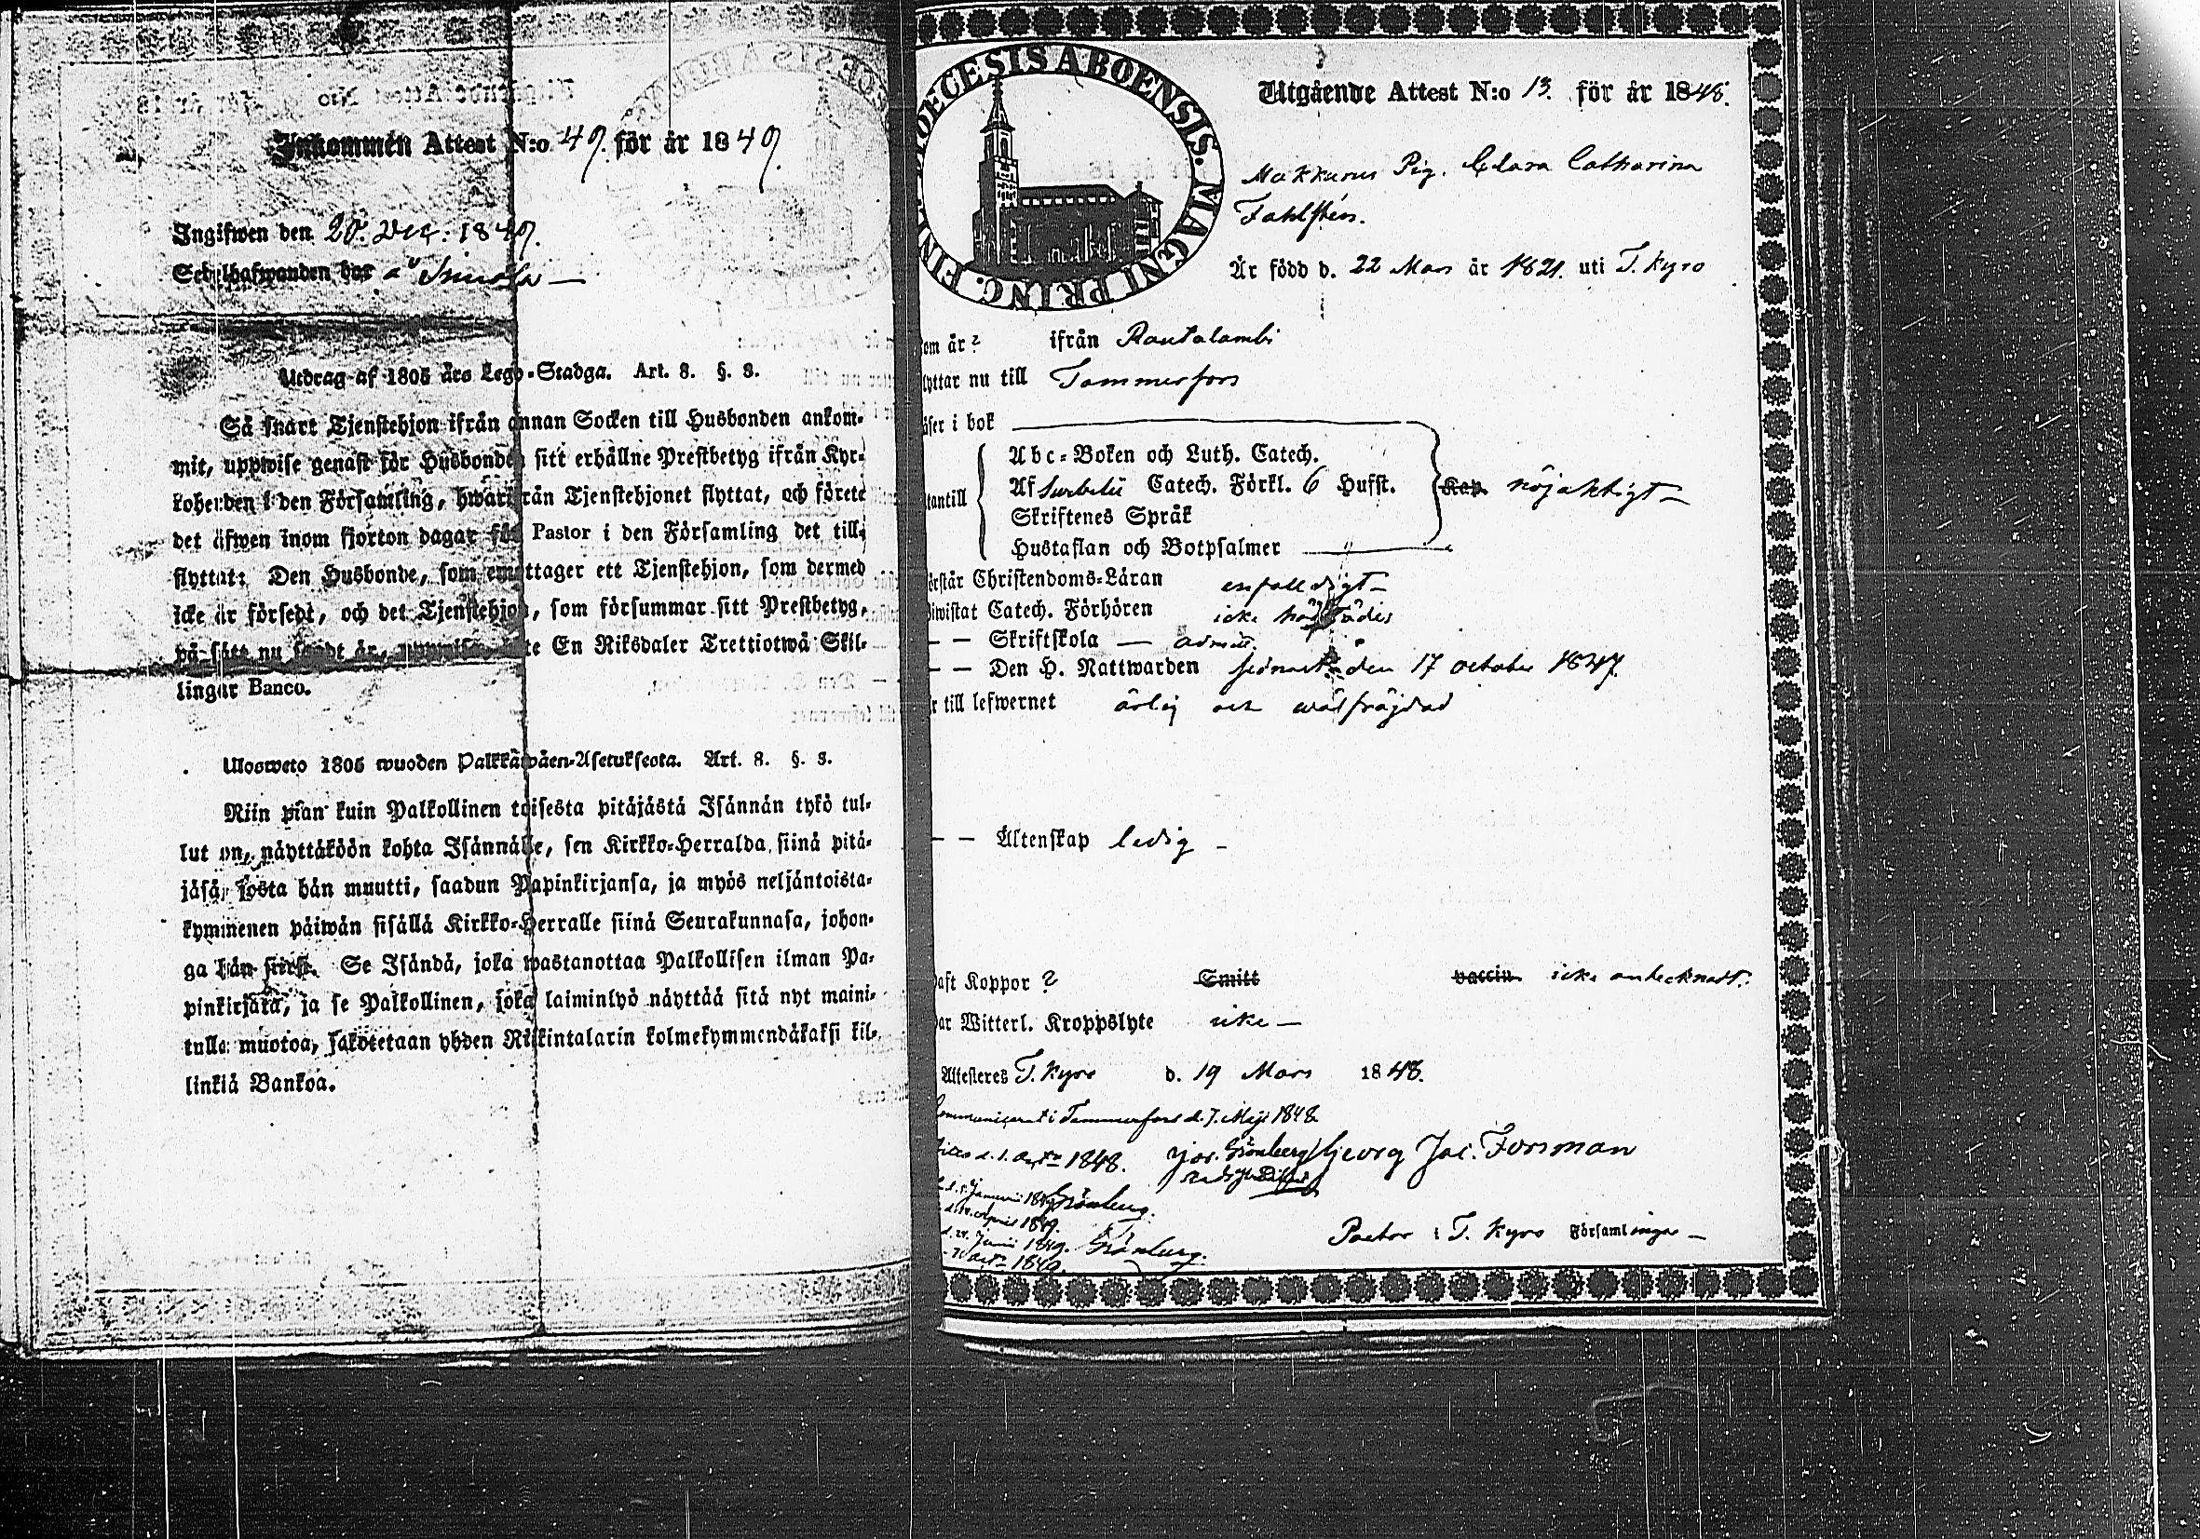 Inkommen Attest N:o 49. för år 1849.
Ingifwen den 20. Dec: 1849.
Sedelhafwanden bor å
Utdrag af 1805 års Lego-Stadga. Art. 8. §. 8.
Så snart Tjenstehjon ifrån annan Socken till Husbonden ankom-
mit, uppwise genast för Husbonden sitt erhållne Prestbetyg ifrån Kyr-
koherden i den Församling, hwarifrån Tjenstehjonet flyttat, och förete
det äfwen inom fjorton dagar för Pastor i den Församling det till-
flyttat: Den Husbonde, som emottager ett Tjenstehjon, som dermed
icke är försedt, och det Tjenstehjon, som försummar sitt Prestbetyg,
på sätt nu sagdt är, uppwisa, böte En Riksdaler Trettiotwå Skil-
lingar Banco.
Ulosweto 1805 wuoden Palkkawäen-Asetuksesta. Art. 8. §. 8.
Niin pian kuin Palkollinen toisesta pitäjästä Isännän tykö tul-
lut on, näyttäköön kohta Isännälle, sen Kirkko-Herralda siinä pitä-
jäsä, josta hän muutti, saadun Papinkirjansa, ja myös neljäntoista-
kymmenen päiwän sisällä Kirkko-Herralle siinä Seurakunnasa, johon-
ga hän siirsi. Se Isändä, joka wastanottaa Palkollisen ilman Pa-
pinkirjata, ja se Palkollinen, joka laiminlyö näyttää sitä nyt maini-
tulla muotoa, sakotetaan yhden Riikintalarin kolmekymmendäkaksi kil-
linkiä Bankoa.
DIOECESIS ABOENSIS. MAGNI PRINC. FINL.
Utgående Attest N:o 13. för år 1848.
Makkarus Pig. Clara Catharina
Fahlstén.
Är född d. 22 Mars år 1821. uti T. Kyro
om är? ifrån Rautalambi
lyttar nu till Tammerfors
äser i bok
Abc-Boken och Luth. Catech.
tantill Af Svebelii Catech. Förkl. 6 Hufst. Kap. nöjaktigt
Skriftenes Språk
Hustaflan och Botpsalmer
örstår Christendoms-Läran enfalldigt
biwistat Catech. Förhören icke härstädes
— — Skriftskola — admit.
— — Den H. Nattwarden sednast den 17 october 1847.
r till lefwernet ärlig och wälfräjdad
— — Äktenskap ledig
haft Koppor? Smitt vaccin icke antecknadt.
har Witterl. Kroppslyte icke
Attesteres T. Kyro d. 19 Mars 1848.
Communicerat i Tammerfors d. 7. Maji 1848.
d. 1. Octbr 1848. Jos. Grönberg Georg Jac. Forsman
d. 5. Januarii 1849 Grönberg.
d. April 1849.
d. 24. Junii 1849. Grönberg.
Octbr 1849.
Pastor i T. Kyro Församlingar